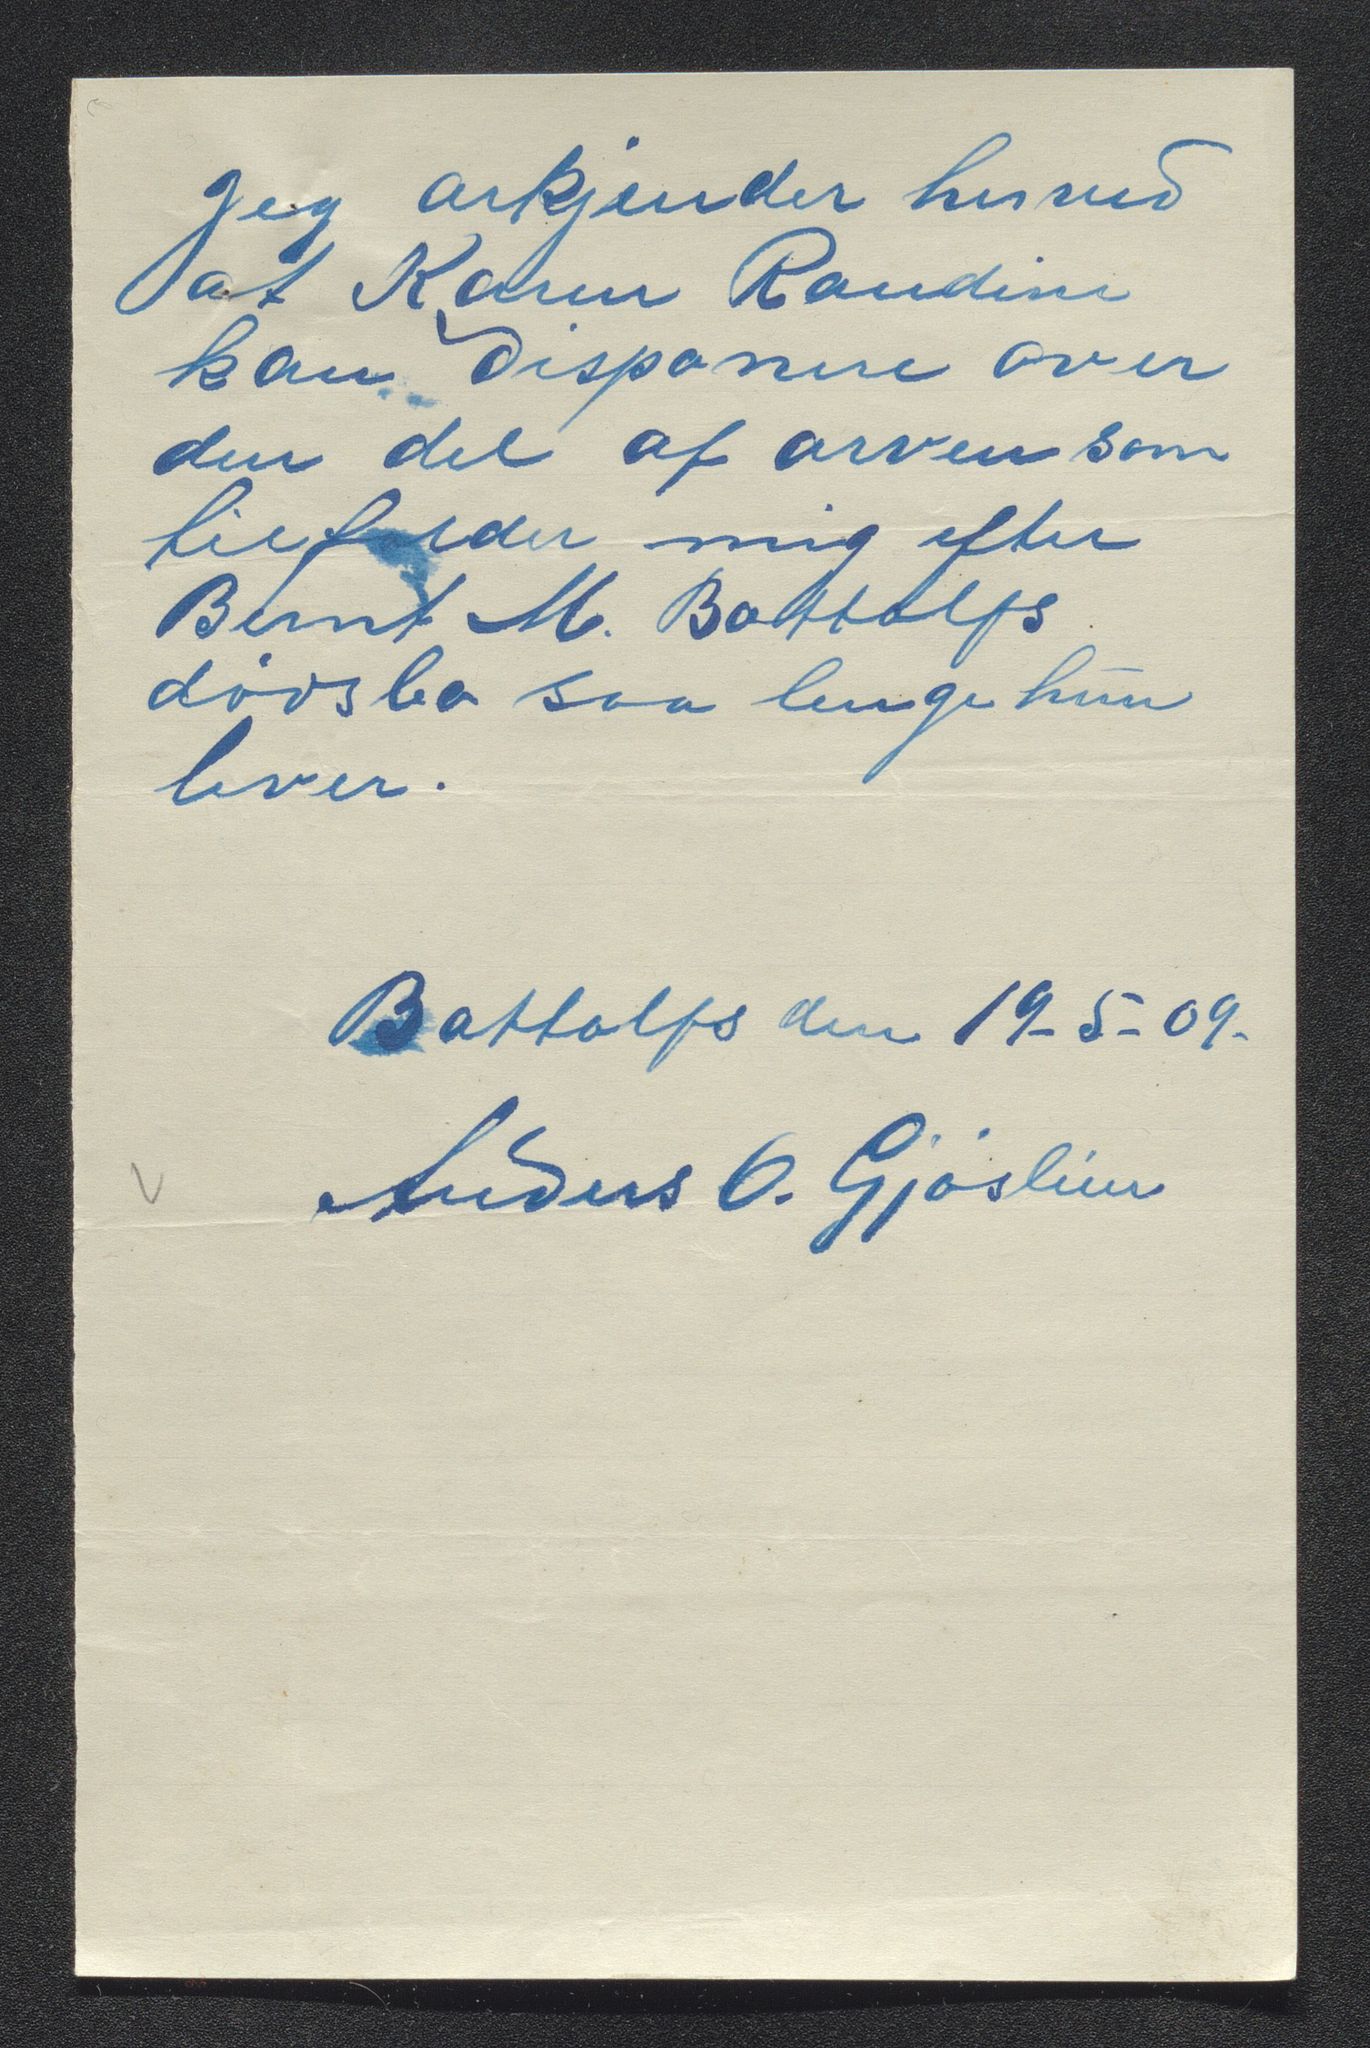 Jeg erkjender herved
at Karen Randine
kan disponere over
den del af arven som
tilfalder mig efter
Bernt M. Bottolfs
dödsbo saa lenge hun
lever.
Bottolfs den 19-5-09.
Anders O. Gjöslien